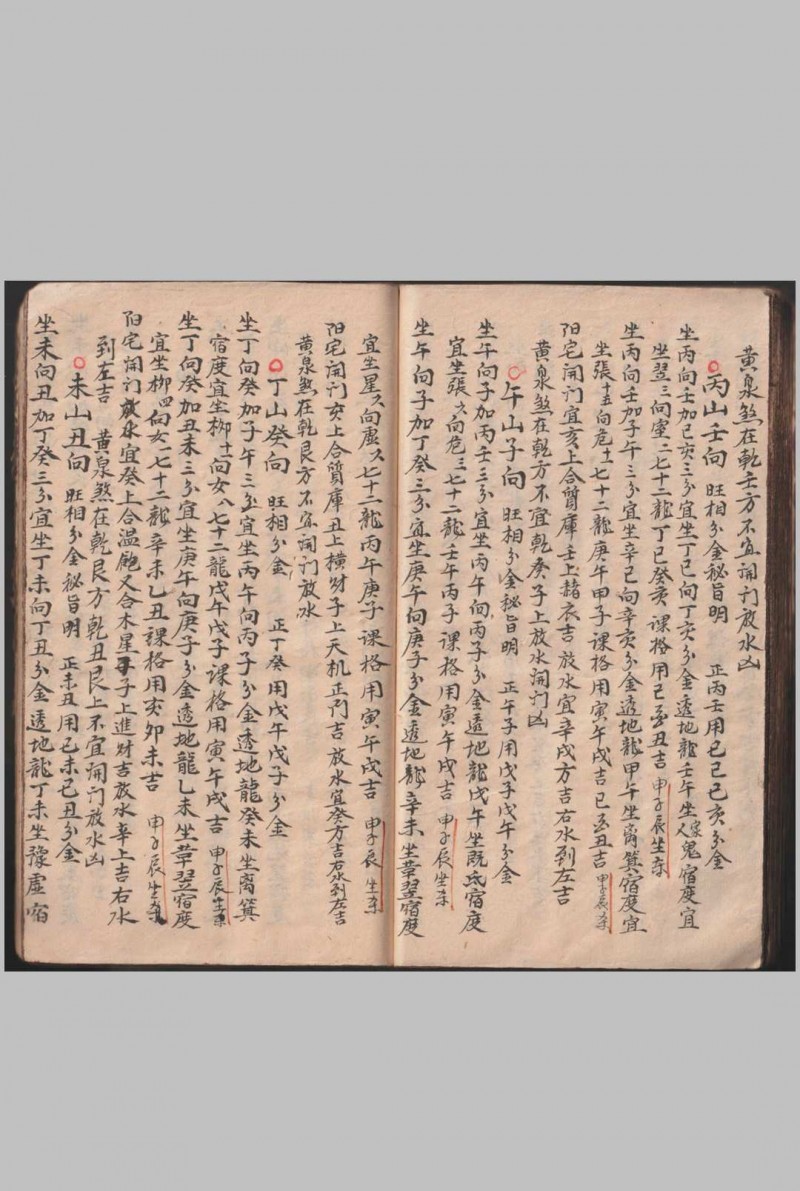 黄泉煞在乾壬方不宜開门放水凶
丙山壬向 旺相分金秘旨明 正丙壬用己巳己亥分金
坐丙向壬加己亥三分宜坐丁巳向丁亥分金透地龍壬午坐家人鬼宿度宜
坐翌三向室二七十二龍丁巳癸亥 课格用巳酉丑吉 申子辰坐杀
坐丙向壬加子午三分宜坐辛巳向辛亥分金透地龍甲午坐离箕宿度宜
坐張十五向危十一七十二龍庚午甲子课格用寅午戌吉巳酉丑吉 申子辰杀
阳宅開门宜亥上合質庫壬上赭衣吉 放水宜辛戌方吉右水到左吉
黄泉煞在乾方不宜乾癸子上放水開门凶
午山子向 旺相分金秘旨明 正午子用戊子戊午分金
坐午向子加丙壬三分宜坐丙午向丙子分金透地龍戊午坐既氐宿度
宜坐張又向危三七十二龍壬午丙子课格用寅午戌吉 申子辰坐杀
坐午向子加丁癸三分宜坐庚午向庚子分金透地龍辛未坐革翌宿度
宜坐星又向虚又七十二龍丙午庚子课格用寅午戌吉 申子辰坐杀
阳宅開门亥上合質庫丑上横财子上天机正门吉 放水宜癸方吉右水到左吉
黄泉煞在乾艮方不宜開门放水
丁山癸向 旺相分金 正丁癸用戊午戊子分金
坐丁向癸加子午三分宜坐丙午向丙子分金透地龍癸未坐离箕
宿度宜坐柳十一向女八七十二龍戊午戊子课格用寅午戌吉 申子辰坐杀
坐丁向癸加丑未三分宜坐庚午向庚子分金透地龍乙未坐革翌宿度
宜坐柳四向女一七十二龍辛未乙丑课格用亥卯未吉 申子辰坐杀
阳宅開门放水宜癸上合温飽又合木星子上進财吉放水辛上吉右水
到左吉 黄泉煞在乾艮方乾丑艮上不宜開门放水凶
未山丑向 旺相分金秘旨明 正未丑用己未己丑分金
坐未向丑加丁癸三分宜坐丁未向丁丑分金透地龍丁未坐豫虚宿